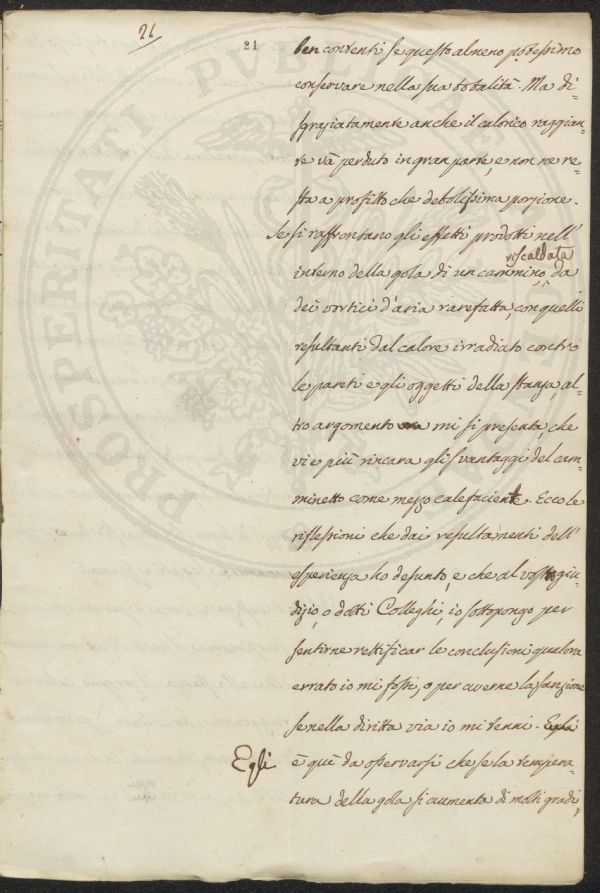 21
21
ben contenti se questo almeno potessimo
conservare nella sua totalità. Ma di=
sgraziatamente anche il calorico raggian=
te và perduto in gran parte, e non ne re=
sta a profitto che debolissima porzione.
Se si raffrontano gli effetti prodotti nell'
riscaldata
interno della gola di un cammino, da
dei vortici d'aria rarefatta, con quelli
resultanti dal calore irradiato contro
le pareti e gli oggetti della stanza, al=
tro argomento ora mi si presenta, che
vie più rincara gli svantaggi del cam=
minetto come mezzo calefaciente. Ecco le
riflessioni che dai resultamenti dell'
esperienza ho desunto, e che al vostro giu=
dizio, o dotti Colleghi, io sottopongo per
sentirne rettificar le conclusioni qualora
errato io mi fossi, o per averne la sanzione
se nella diritta via io mi tenni. Egli
Egli
è quì da osservarsi che se la tempera=
tura della gola si aumenta di molti gradi,
PROSPERITATI PVBLICAE